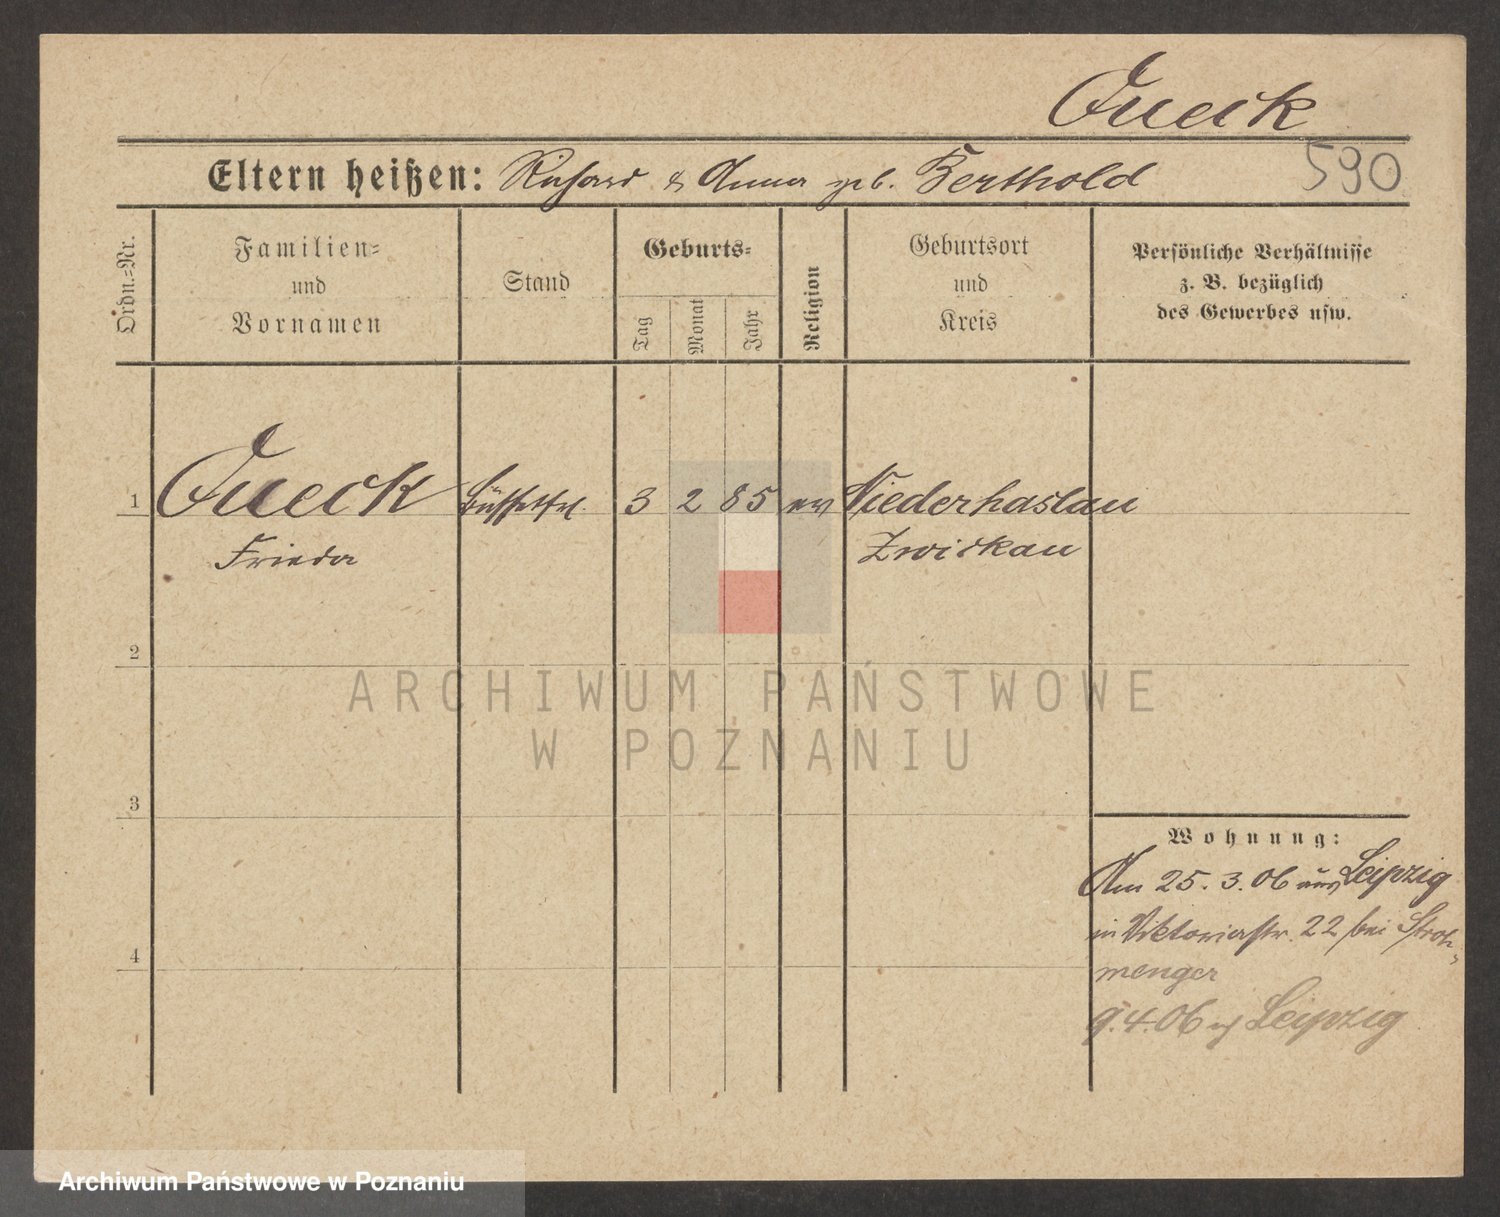 Queck
590
Eltern heißen: Richard & Anna geb. Berthold
Ordn.-Nr.
Familien-
und
Vornamen
Stand
Geburts-
Tag
Monat
Jahr
Religion
Geburtsort
und
Kreis
Persönliche Verhältnisse
z. B. bezüglich
des Gewerbes usw.
1 Queck Büffetfrl. 3 2 85 ev Niederhaslau
Frieda Zwickau
2
ARCHIWUM PAŃSTWOWE
W POZNANIU
3
Wohnung:
Am 25.3.06 aus Leipzig
in Viktoriastr. 22 bei Stroh-
menger
4
9.4.06 n/ Leipzig
Archiwum Państwowe w Poznaniu